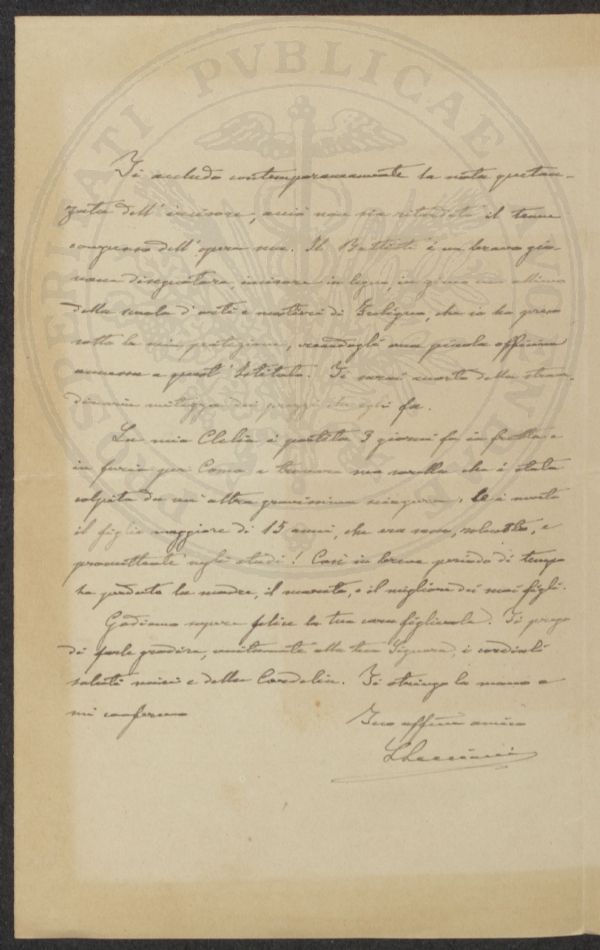 PROSPERITATI PVBLICAE
Ti accludo contemporaneamente la nota quetan-
zata dell' incisore, acciò non sia ritardato il tenue
compenso dell' opera sua. Il Battisti è un bravo gio-
vane disegnatore, incisore in legno,
della scuola d'arti e mestieri di Foligno, che io ho preso
sotto la mia protezione, creandogli una piccola officina
annessa a quest' Istituto. Ti sarai accorto della straor-
dinaria mitezza dei prezzi che egli fa.
La mia Clelia è partita 3 giorni fa in fretta e
in furia per Como a trovare sua sorella che è stata
colpita da un' altra gravissima sciagura. Le è morto
il figlio maggiore di 15 anni, che era sano, robusto, e
promettente negli studi! Così in breve periodo di tempo
ha perduto la madre, il marito, e il migliore dei suoi figli.
Godiamo sapere felice la tua cara figliuola. Ti prego
di farle gradire, unitamente alla tua Signora, i cordiali
saluti miei e della Cordelia. Ti stringo la mano e
mi confermo
Tuo affmo amico